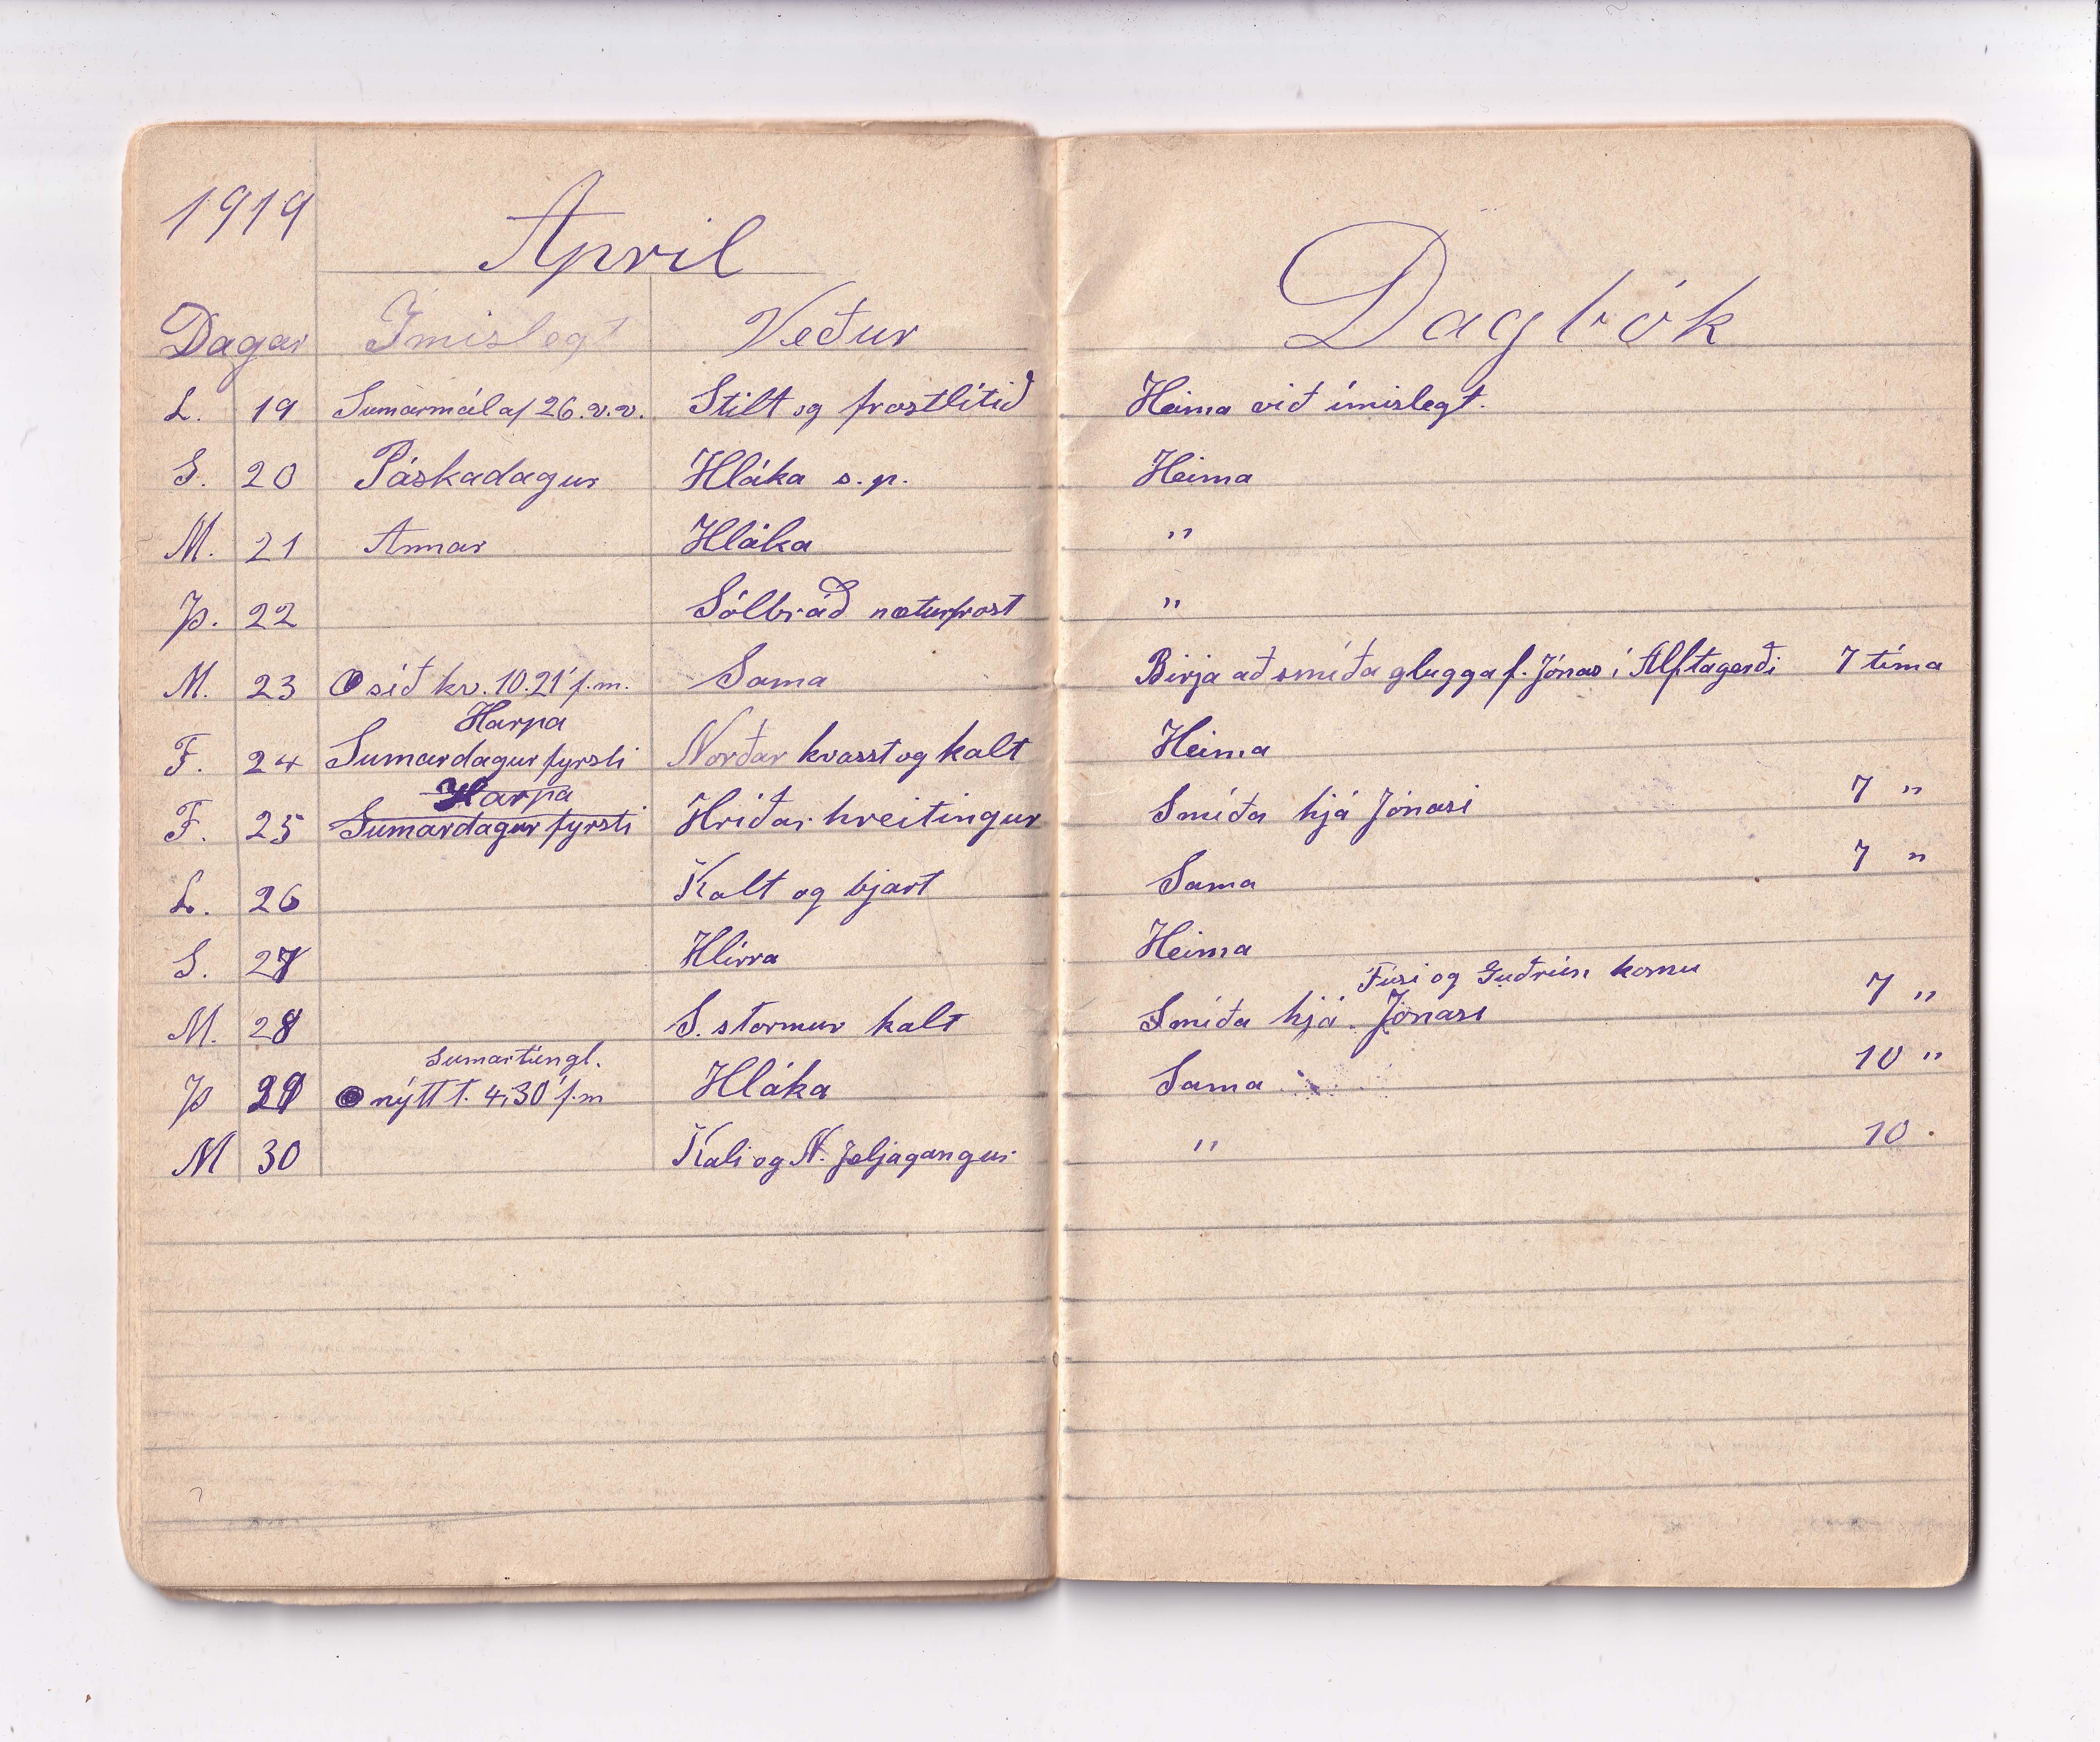 1919
April
Dagar Ímislegt Veður
Dagbók
L. 19 Sumarmál af 26. v.v. Stilt og frostlítið Heima við ímislegt.
S. 20 Páskadagur Hláka s.p. Heima
M. 21 Annar Hláka "
Þ. 22 Sólbráð næturfrost "
M. 23 síð kv. 10.21' f.m. Sama Birja að smíða glugga f. Jónas í Álftagerði 7 tíma
Harpa
F. 24 Sumardagur fyrsti Norðar kvasst og kalt Heima
Harpa
F. 25 Sumardagur fyrsti Hríðar hreitingur Smíða hjá Jónasi 7 "
L. 26 Kalt og bjart Sama 7 "
S. 27 Hlírra Heima
Fúsi og Guðrún komu
M. 28 S. stormur kalt Smíða hjá Jónasi 7 "
Sumartúngl.
Þ 29 nýtt t. 4,30' f.m Hláka Sama 10 "
M 30 og N. Jeljagangur " 10 .